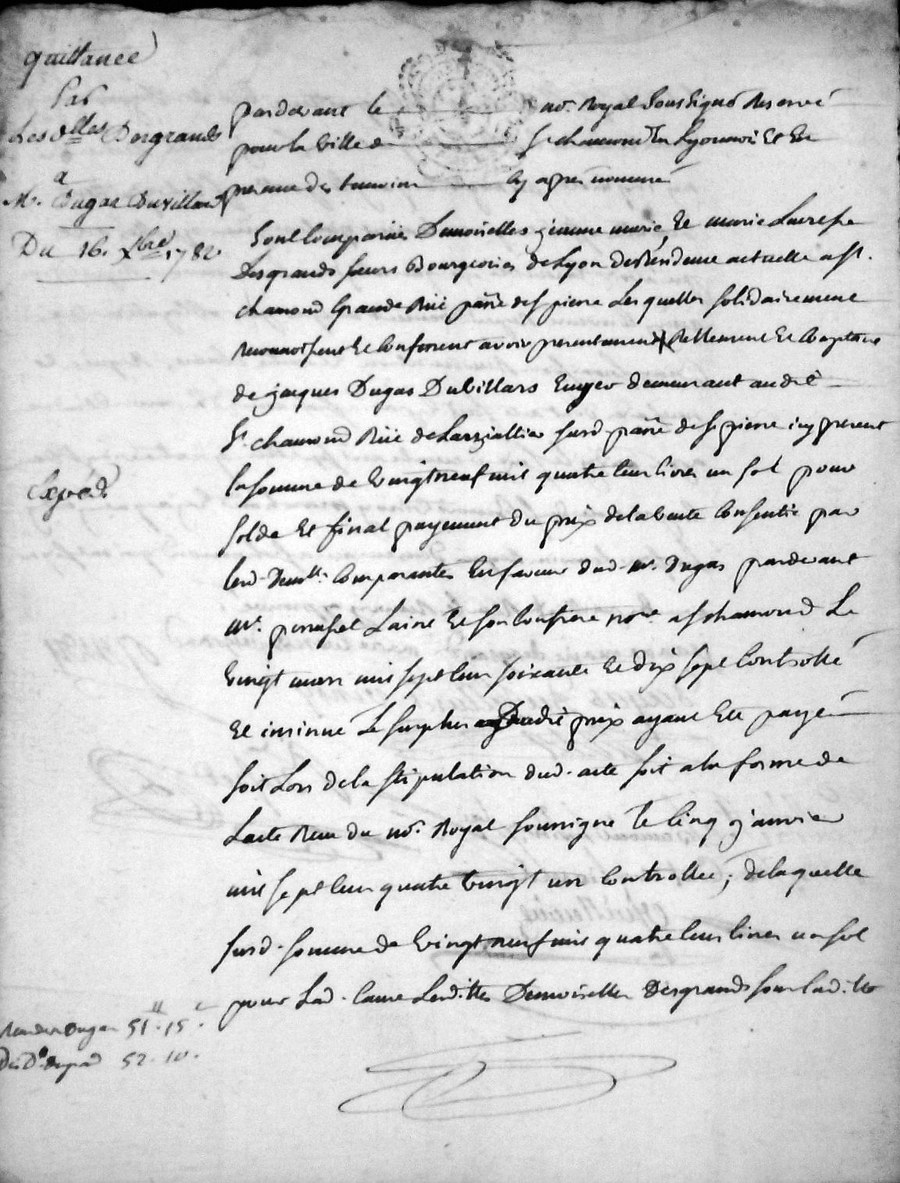 quittance
Par
Les d.lles Desgrands
a
M.r Dugas Duvillard
Du 16. Xbre 1782
pardevant le no.re Royal soussigné Reservé
pour la ville de St chamond En Lyonnois Et En
presence des temoins cy apres nommés
Sont Comparües Demoiselles jeanne marie, Et marie
Desgrands soeurs Bourgeoises de Lyon demeurant actuellement a St.
chamond Grande Rüe parsse de st pierre Lesquelles solidairement
reconnoissent Et Confessent avoir presentement Reellement Et Comptant
de jacques Dugas Dubillars Ecuyer demeurant audit
St. chamond Rüe de susd. parsse de st pierre icy present
la somme de vingt neuf mil quatre Cens livres un sol pour
solde Et final payement du prix de la vente Consentie par
lesd. Demlles Comparantes En faveur dud. mr. Dugas pardevant
me. Lainé Et son Confrere nores a st chamond Le
vingt mars mil sept Cens soixante Et dix sept Controllé
Et insinué Le surplus dudit prix ayant Eté payé
soit Lors de la stipulation dud. acte soit a la forme de
Lacte Recu du nore Royal soussigné le Cinq janvier
mil sept Cens quatre vingt un Controllé; de laquelle
susd. somme de vingt neuf mil quatre Cens livres un sol
pour Lad. Cause Lesdittes Demoiselles Desgrands
Expéd.
Dugas 51.15.
52.10.